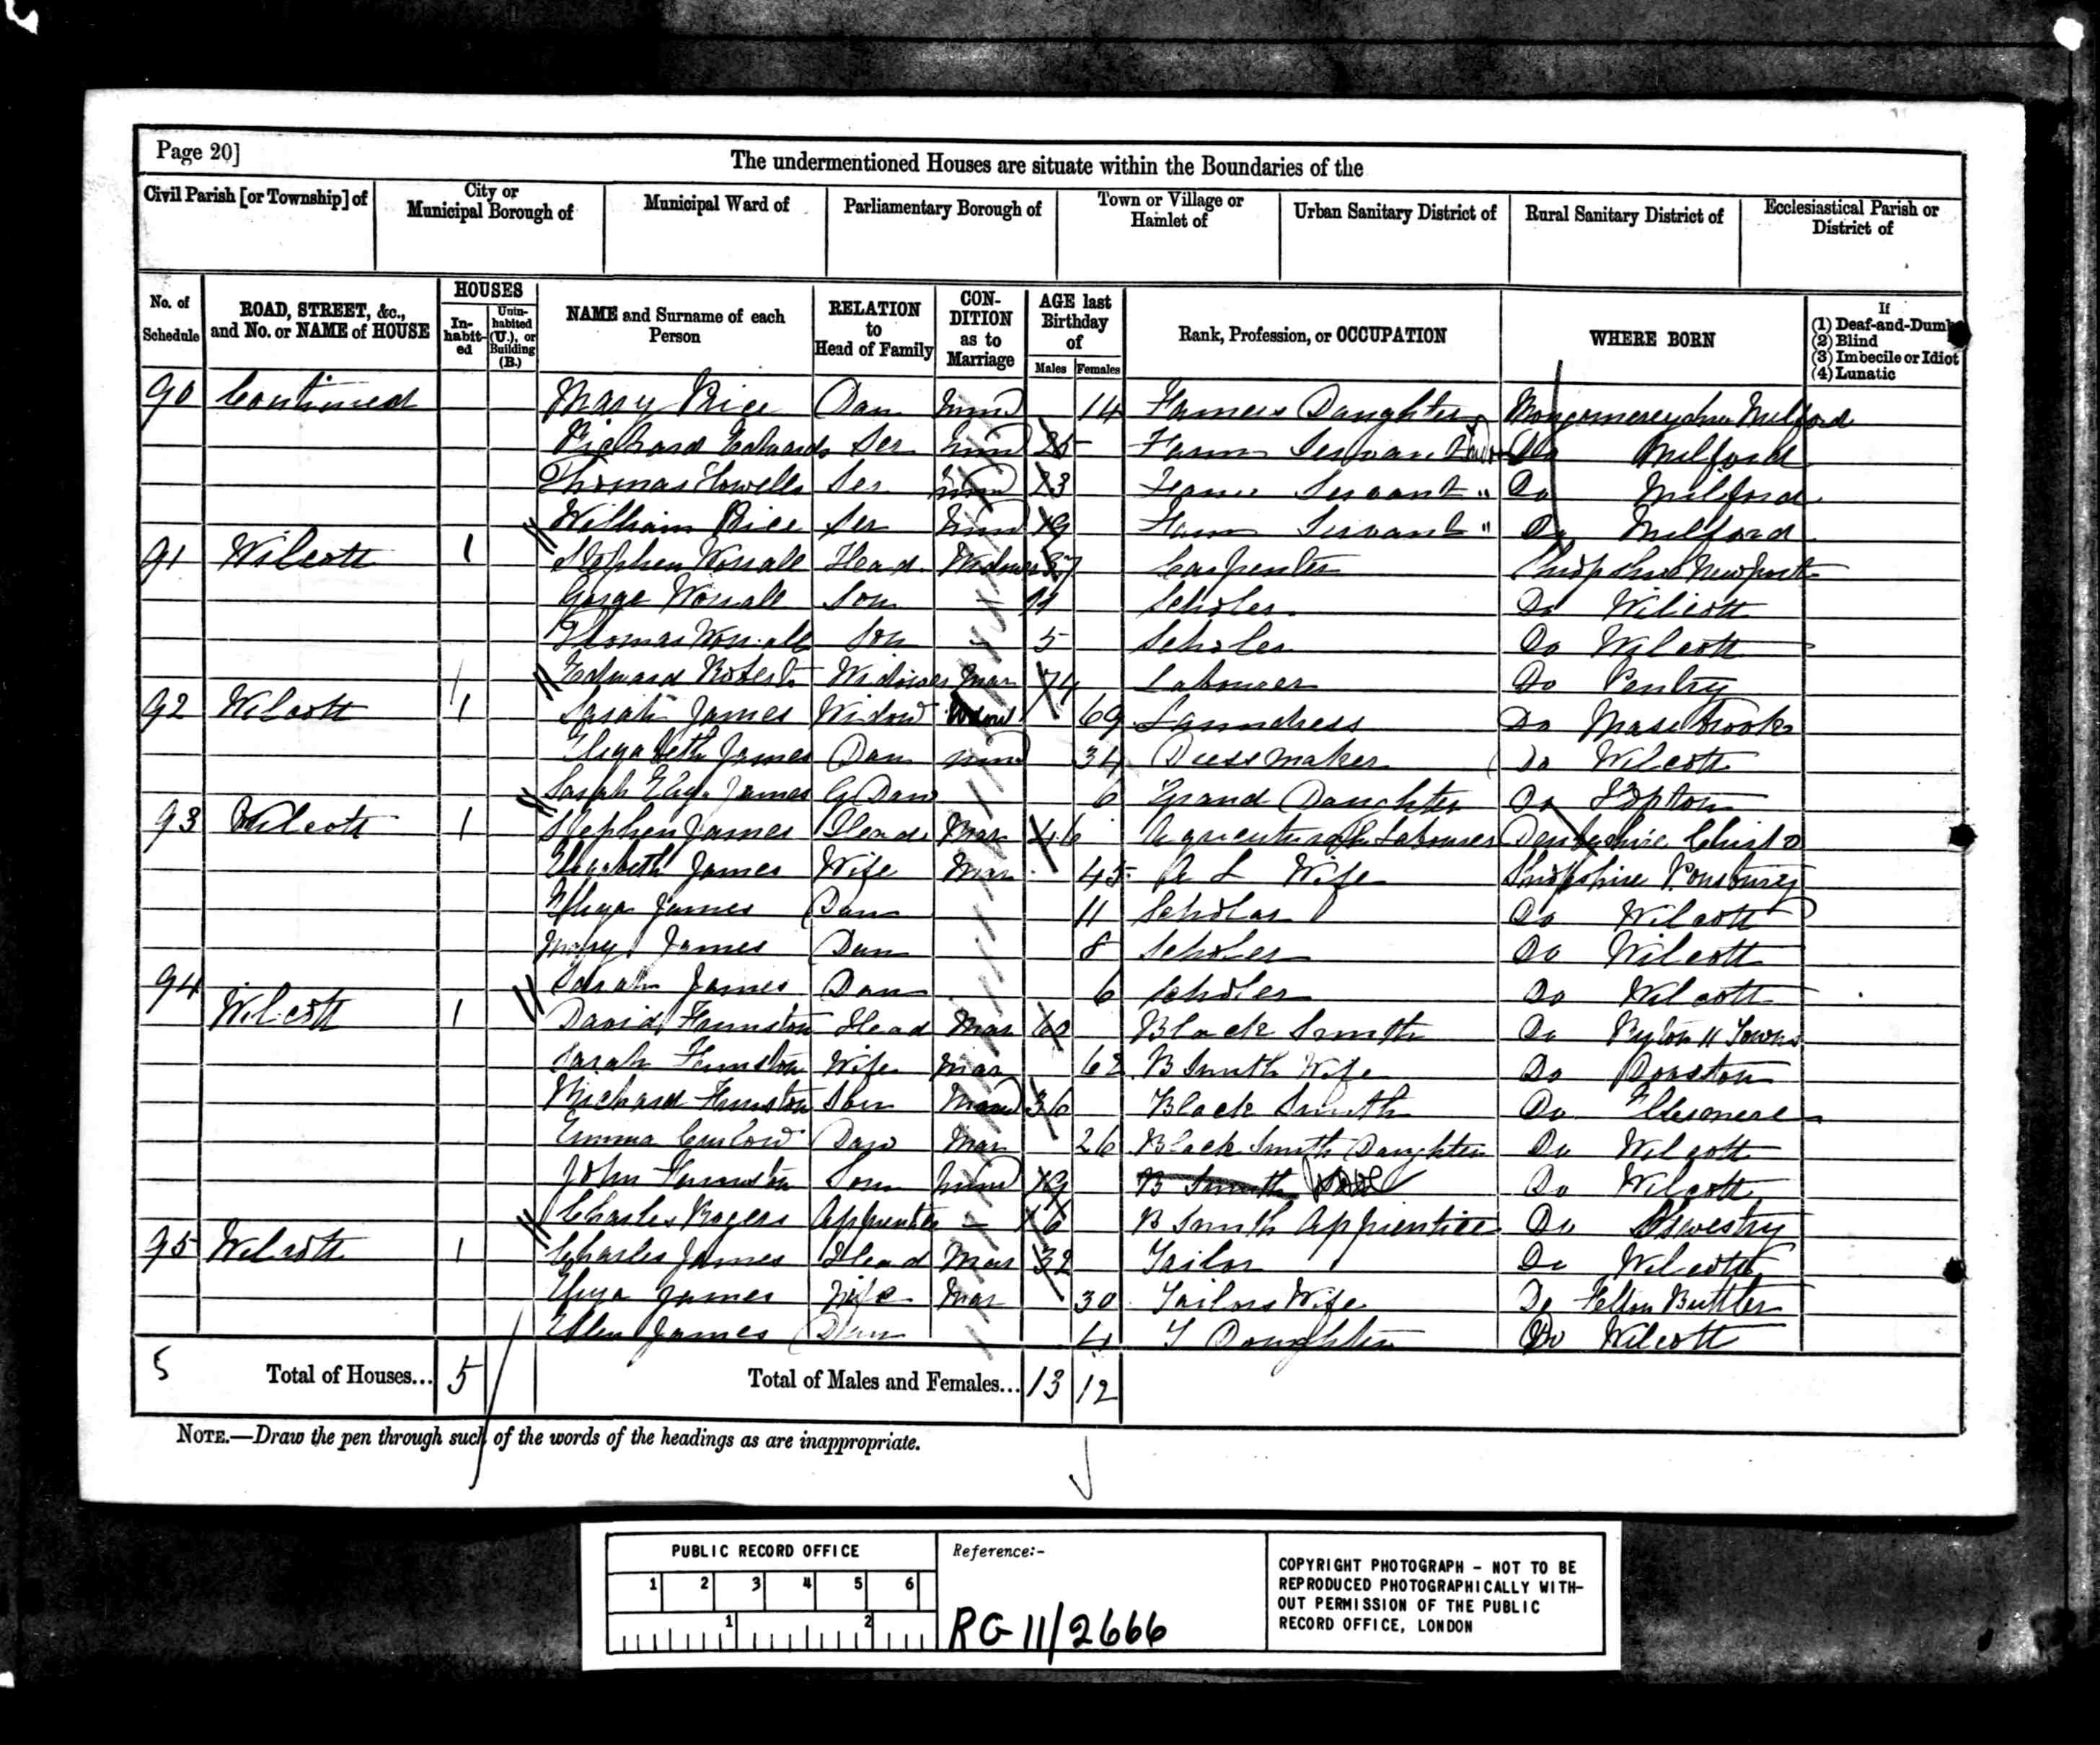 Page 20]
The undermentioned Houses are situate within the Boundaries of the
Civil Parish [or Township] of | City or Municipal Borough of | Municipal Ward of | Parliamentary Borough of | Town or Village or Hamlet of | Urban Sanitary District of | Rural Sanitary District of | Ecclesiastical Parish or District of
No. of Schedule | ROAD, STREET, &c., and No. or NAME of HOUSE | HOUSES In-habit-ed | Unin-habited (U.), or Building (B.) | NAME and Surname of each Person | RELATION to Head of Family | CON-DITION as to Marriage | AGE last Birthday of Males | Females | Rank, Profession, or OCCUPATION | WHERE BORN | If (1) Deaf-and-Dumb (2) Blind (3) Imbecile or Idiot (4) Lunatic
90 Continued Mary Price Dau 14 Farmers Daughter Milford
Richard Edwards Ser 25 Farm Servant Do Milford
Thomas Howells Ser 23 Farm Servant " Do Milford
William Price Ser 19 Farm Servant " Do Milford
91 Wilcott 1 Stephen Head Widower 37 Carpenter Shropshire Newport
George Son Scholer Do Wilicott
Thomas Son 5 Scholer Do Wilcott
Edward Roberts Widower Mar 74 Labourer Do Pentry
92 Wilcott 1 Sarah James Widow Widow 69 Laundress Do
Elizabeth James Dau 34 Dressmaker Do Wilcott
Sarah Eliz. James G Daw 6 Grand Daughter Do
93 Wilcott 1 Stephen James Head Mar 46 Agricultural Labourer
Elizabeth James Wife Mar 45 A L Wife Shropshire
Eliza James Dau 11 Scholar Do Wilcott
Mary James Dau 8 Scholer Do Wilcott
94 Sarah James Dau 6 Scholer Do Wilcott
Wilcott 1 David Head Mar 60 Black Smith Do
Sarah Wife Mar 62 B Smith Wife Do
Richard Son 36 Black Smith Do Ellesmere
Emma Daw Mar 26 Black Smith Daughter Do Wilcott
John Son 19 B Smith Do Wilcott
Charles Rogers Apprentice – 16 B Smith Apprentice Do Oswestry
95 Wilcott 1 Charles James Head Mar 32 Tailor Do Wilcott
Eliza James Wife Mar 30 Tailors Wife Do Felton Buttler
Ellen James Dau 4 T Daughter Do Wilcott
5 Total of Houses... 5 Total of Males and Females... 13 12
NOTE.—Draw the pen through such of the words of the headings as are inappropriate.
PUBLIC RECORD OFFICE
1 2 3 4 5 6
1 2
Reference:-
RG 11/2666
COPYRIGHT PHOTOGRAPH – NOT TO BE
REPRODUCED PHOTOGRAPHICALLY WITH-
OUT PERMISSION OF THE PUBLIC
RECORD OFFICE, LONDON